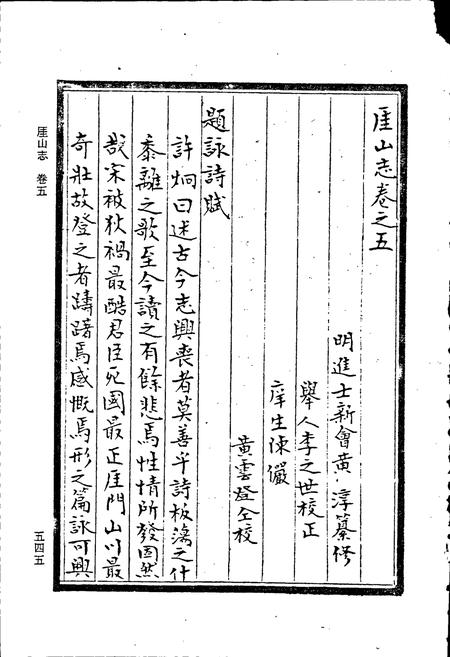 厓山志卷之五
明進士新會黃淳纂修
舉人李之世校正
庠生陳儼
黃雲登仝校
題詠詩賦
許炯曰述古今志興喪者莫善乎詩板蕩之什
黍離之歌至今讀之有餘悲焉性情所發固然
哉宋被狄禍最酷君臣死國最正厓門山川最
奇壯故登之者躊躇焉感慨焉形之篇詠可興
厓山志 卷五
五四五